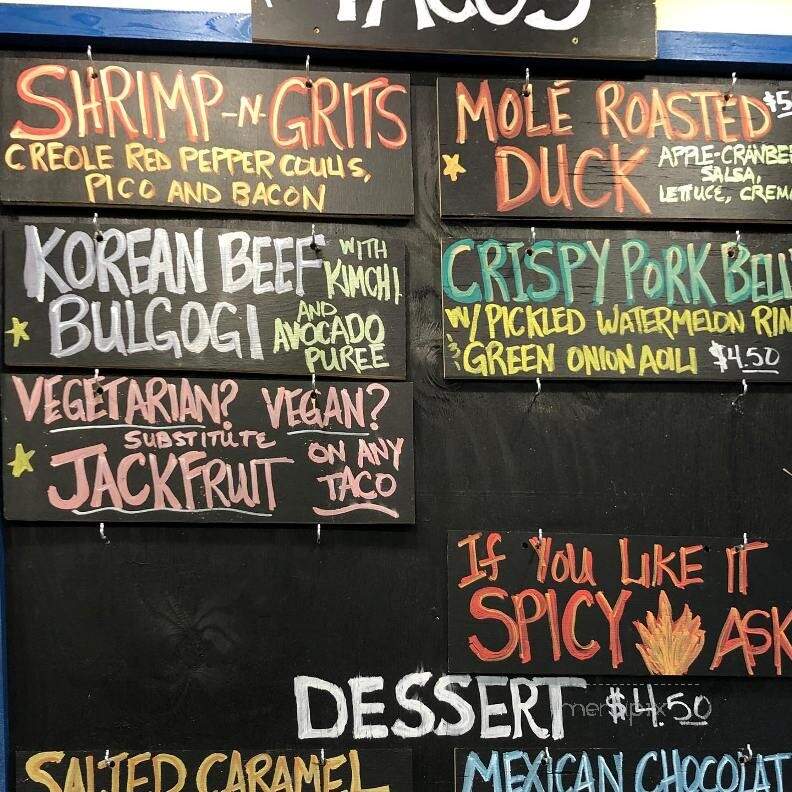 TACOS
SHRIMP-N-GRITS
CREOLE RED PEPPER COULIS,
PICO AND BACON
MOLÉ ROASTED $5
DUCK
APPLE-CRANBE
SALSA,
LETTUCE, CREM
KOREAN BEEF
BULGOGI
WITH
KIMCHI
AND
AVOCADO
PUREE
CRISPY PORK BELL
W/ PICKLED WATERMELON RIN
& GREEN ONION AOILI $4.50
VEGETARIAN? VEGAN?
SUBSTITUTE
JACKFRUIT
ON ANY
TACO
IF YOU LIKE IT
SPICY ASK
DESSERT $4.50
SALTED CARAMEL
MEXICAN CHOCOLAT